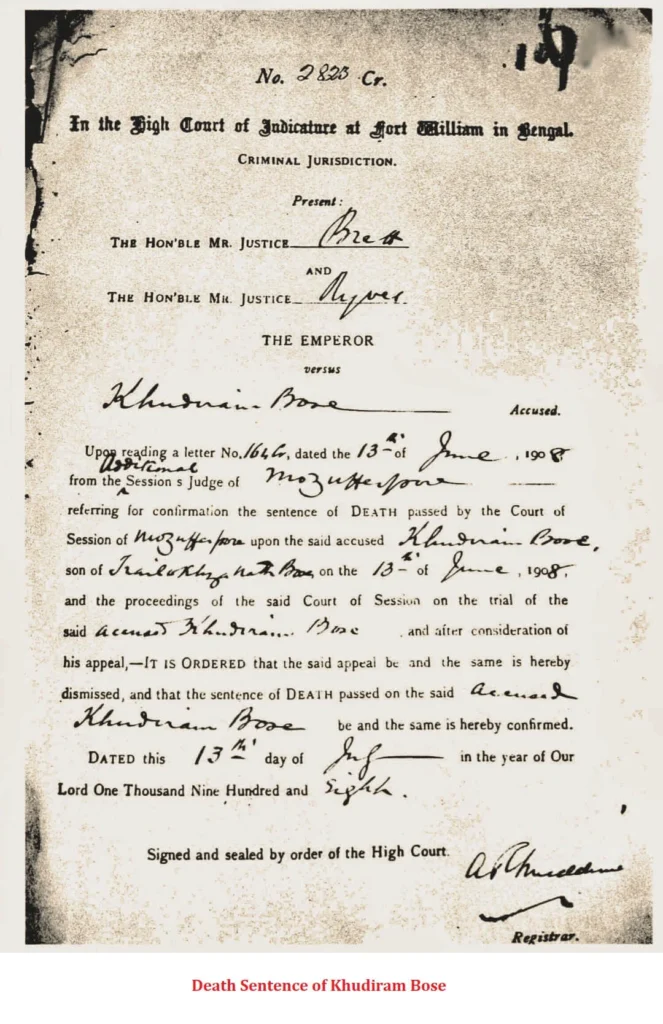 No. 2823 Cr.
In the High Court of Judicature at Fort William in Bengal.
CRIMINAL JURISDICTION.
Present:
THE HON'BLE MR. JUSTICE Brett
AND
THE HON'BLE MR. JUSTICE Ryves
THE EMPEROR
versus
Khudiram Bose Accused.
Upon reading a letter No. 164G, dated the 13th of June, 1908
Additional
from the Sessions Judge of Mozufferpore
referring for confirmation the sentence of DEATH passed by the Court of
Session of Mozufferpore upon the said accused Khudiram Bose,
son of Trailokhya Nath Bose, on the 13th of June, 1908,
and the proceedings of the said Court of Session on the trial of the
said accused Khudiram Bose, and after consideration of
his appeal,—IT IS ORDERED that the said appeal be and the same is hereby
dismissed, and that the sentence of DEATH passed on the said accused
Khudiram Bose be and the same is hereby confirmed.
DATED this 13th day of July in the year of Our
Lord One Thousand Nine Hundred and Eight.
Signed and sealed by order of the High Court.
Registrar.
Death Sentence of Khudiram Bose